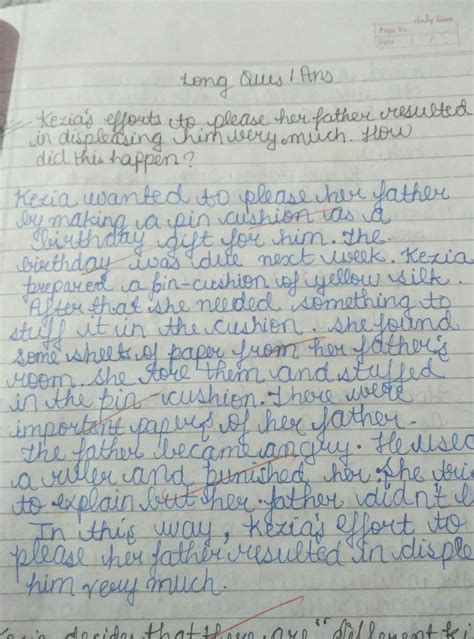 Page No.
Date
Long Ques / Ans
Kezia's efforts to please her father resulted
in displeasing him very much. How
did this happen?
Kezia wanted to please her father
by making a pin cushion as a
birthday gift for him. The
birthday was due next week. Kezia
prepared a pin-cushion of yellow silk.
After that she needed something to
stuff it in the cushion. She found
some sheets of paper from her father's
room. She tore them and stuffed
in the pin-cushion. There were
important papers of her father.
The father became angry. He used
a ruler and punished her. She tri
to explain but her father didn't l
In this way, Kezia's effort to
please her father resulted in disple
him very much.
Kezia decides that there are "different